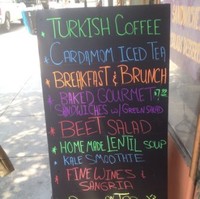 TURKISH COFFEE
CARDAMOM ICED TEA
BREAKFAST & BRUNCH
BAKED GOURMET $7.00
SANDWICHES w/GREEN SALAD
BEET SALAD
HOME MADE LENTIL SOUP
KALE SMOOTHIE
FINE WINES &
SANGRIA